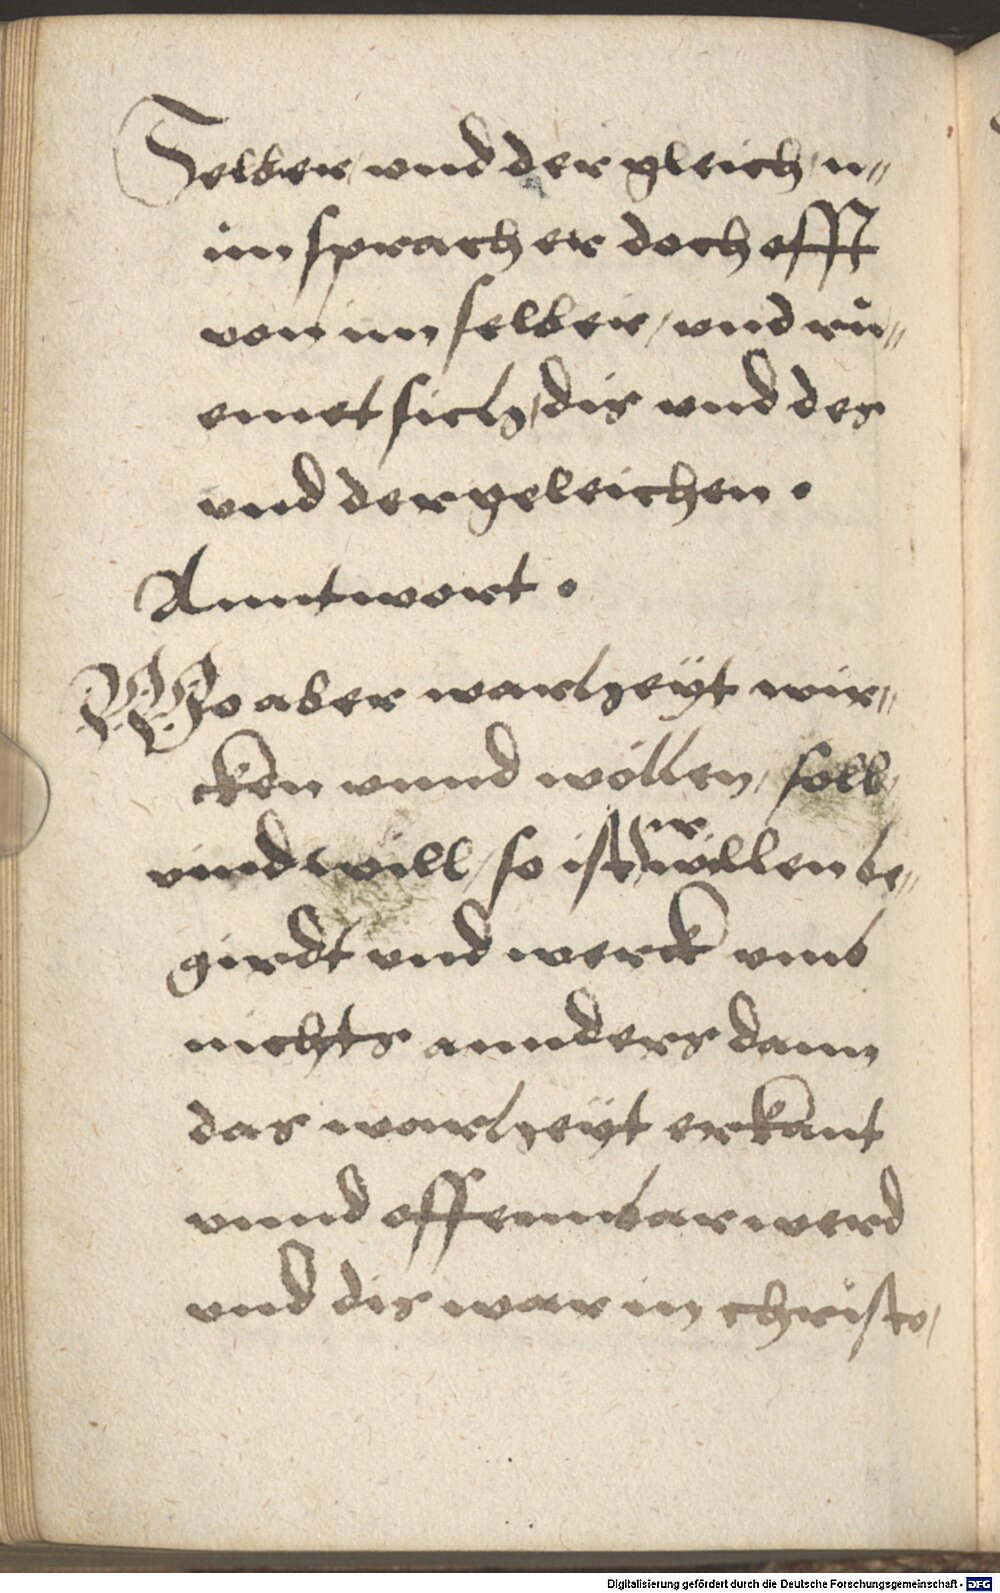 Selber / vnd der gleich / n〃
im sprach er doch offt
von im selber / vnd rü〃
emet sich / dis vnd des
vnd der geleichen .
Anntwort .
Wo aber warheyt wir〃
cken vnnd wöllen / soll /
vnnd will / so ist ir willen be〃
girdt vnd werck vmb
nichts annders dann
das warheyt erkant
vnnd offennbar werd
vnd dis war in christo /
Digitalisierung gefördert durch die Deutsche Forschungsgemeinschaft - DFG